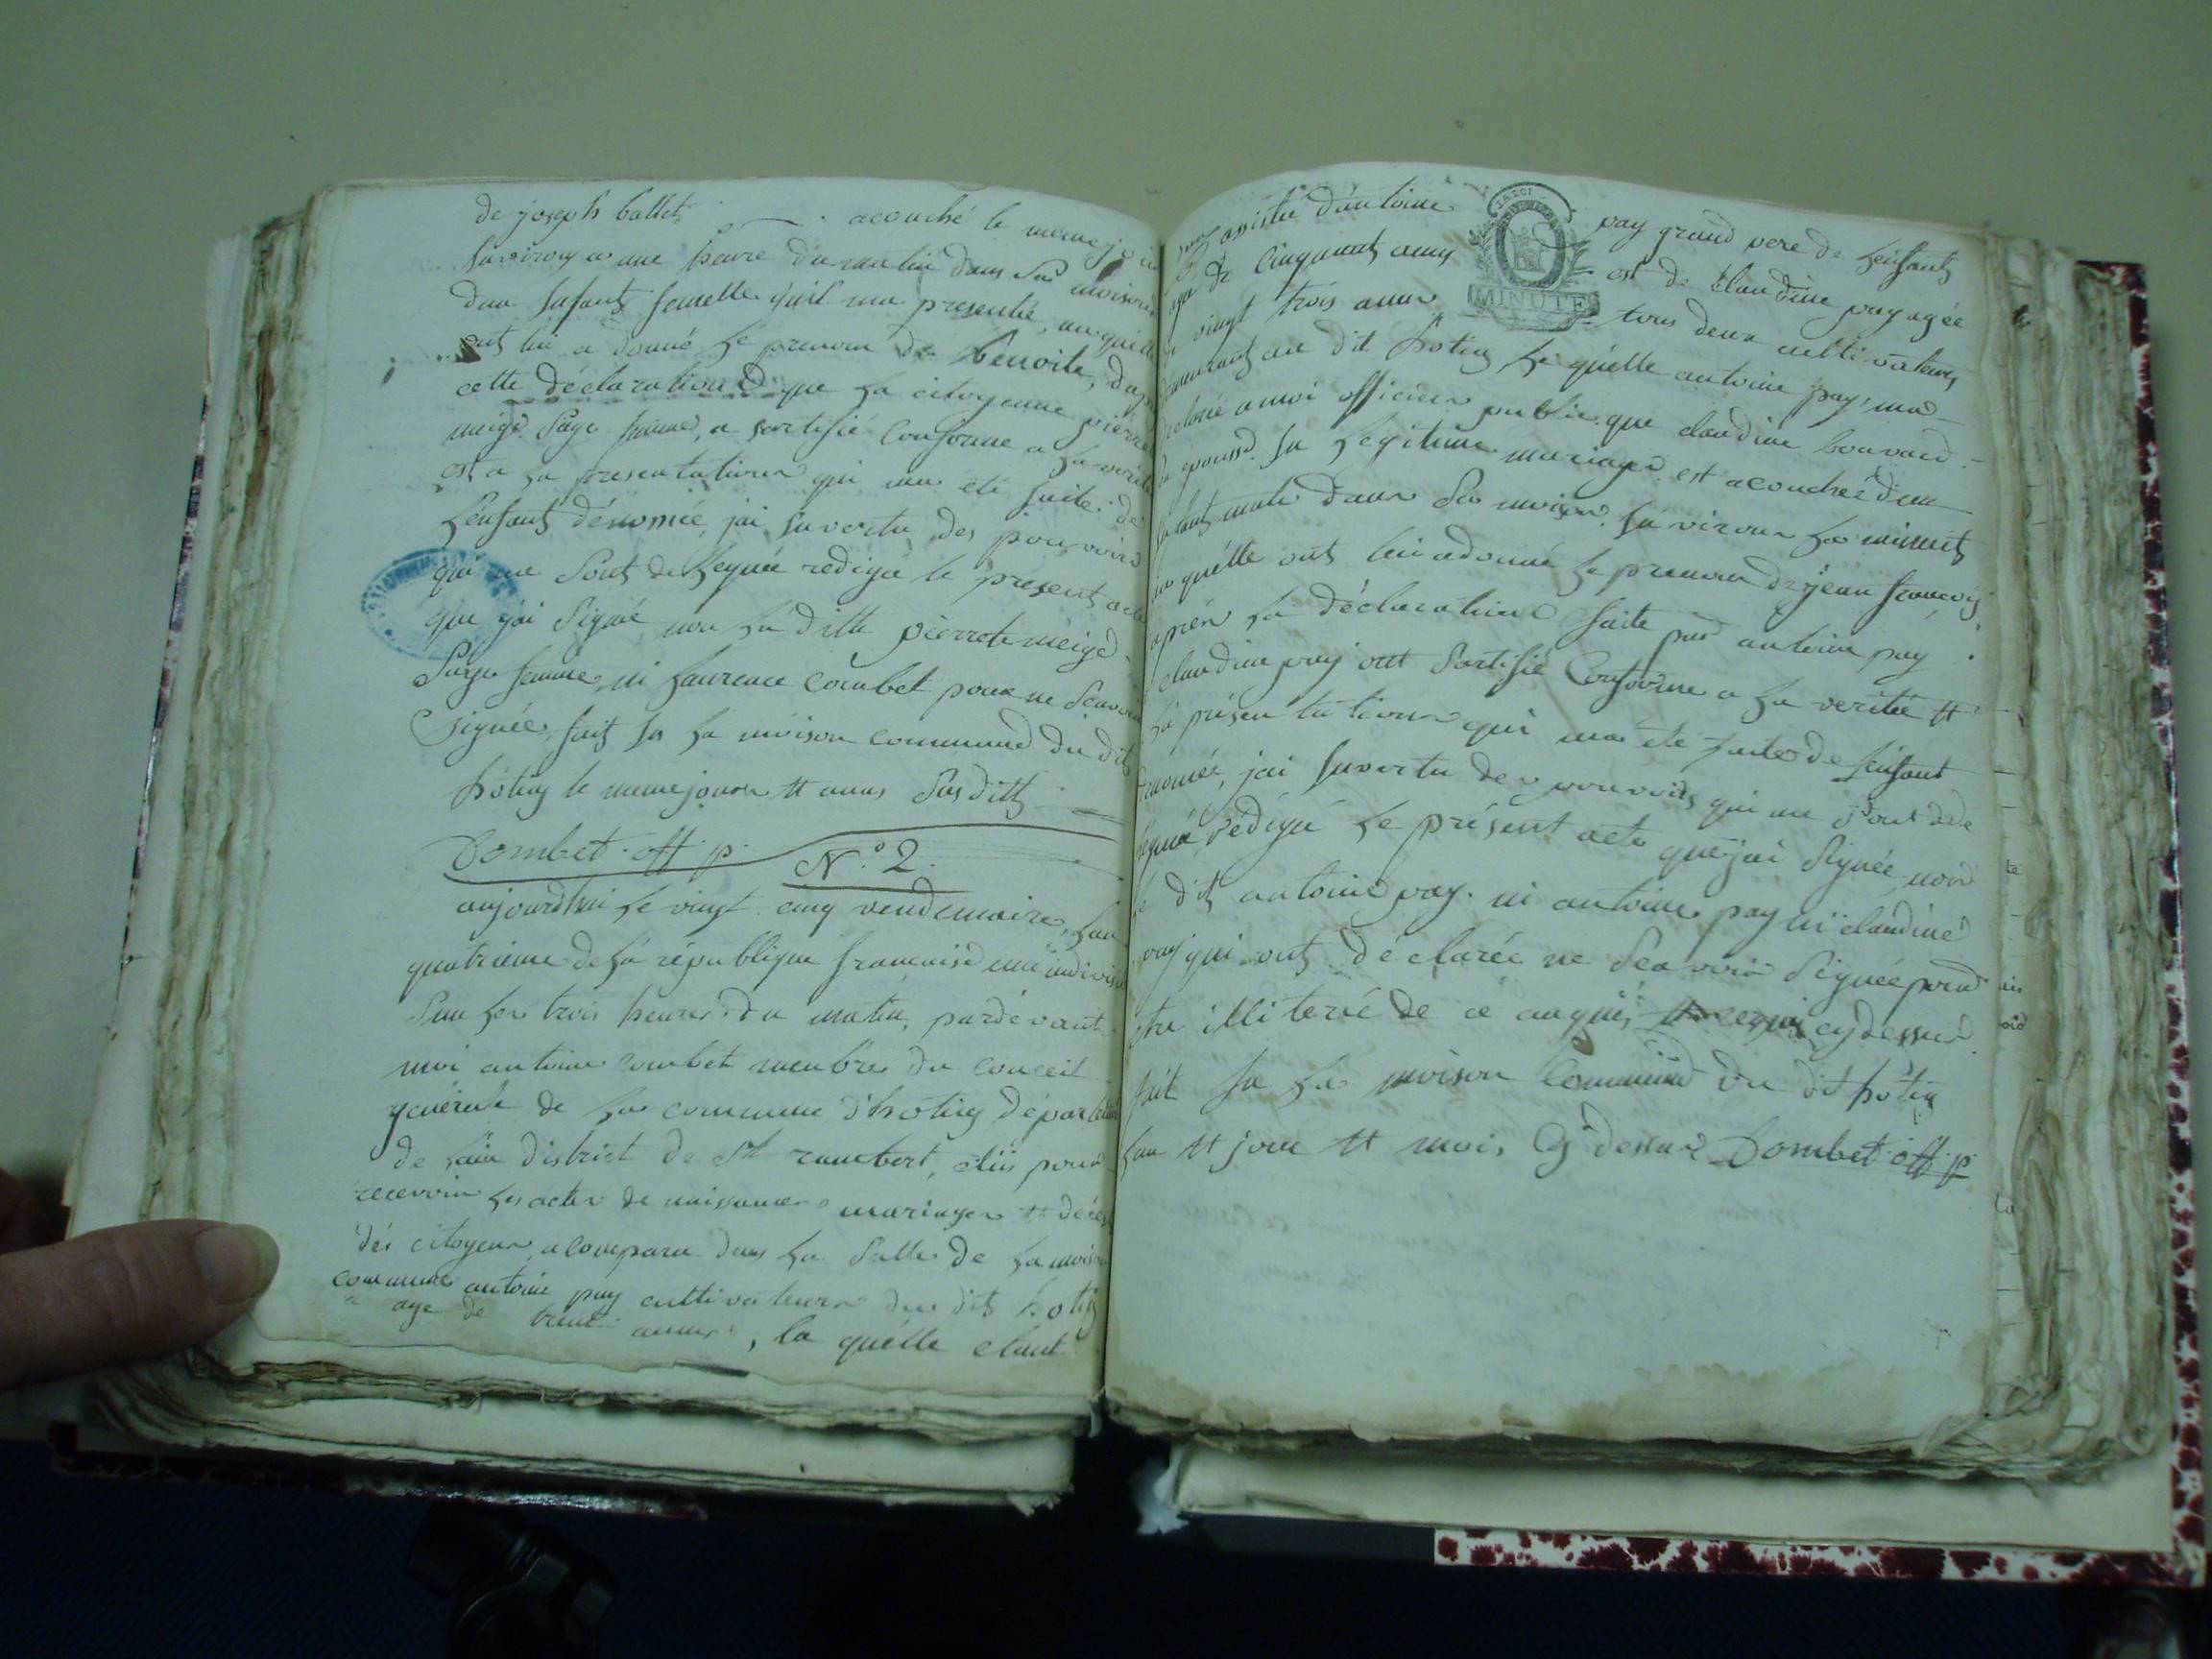 de joseph ballet acouché le meme jour
environ a une heure du matin dans sa moison
dun enfant femelle quil ma presenté, au quelle
ont lui a donné le prenom de benoite, dapré
cette déclaration que la citoyenne pierrete
meige sage femme, a sertifié conforme a la verité
est a la presentation qui ma été faite de
lenfant dénomée, jai en vertu des pouvoirs
qui me sont delegués redigé le present acte
que jai signé non la ditte pierrete meige
sage femme, ni laurence combet pour ne scavoir
signée, fait en la moison commune du dit
hotiey le meme jour et ans sus ditts
Combet off. p.
N.° 2.
aujourdhui le vingt cinq vendemaire, lan
quatrieme de la république francaise une indivis
sur les trois heures du matin, pardevant
moi antoine combet menbre du conceil
general de la commune d'hotiey départem
de lain district de St rambert, élus pour
recevoir les actes de naisance mariages et décés
dés citoyens, a comparu dans la salle de la moison
commune antoine pay cultivateur du dit hotiey
age de trente annés, la quélle etant
assistée dantoine pay grand pere de lenfant
age de cinquant anns est de claudine pay agée
de vingt trois anns tous deux cultivateurs
demeurant au dit hotiey le quélle antoine pay, ma
declaré a moi officier public que claudine bouvard
sa epouse en legitime mariage est acouchée dun
enfant male dans sa moison environ le minuit
au quélle ont lui a donné le prenom de jean francois
aprés la déclaration faite par antoine pay
claudine pay ont sertifié conforme a la verité et
la présentation qui ma été faite de lenfant
denomée, jai en vertu des pouvoirs qui me sont dé
legué rédigé le présent acte que jai signée non
le dit antoine pay. ni antoine pay ni claudine
pay qui ont déclarée ne scavoir signée pour
etre illiteré de ce enquis cydessus.
fait en la moison commune du dit hotiey
lan et jour et mois cy dessus Combet off. p.
MINUTE